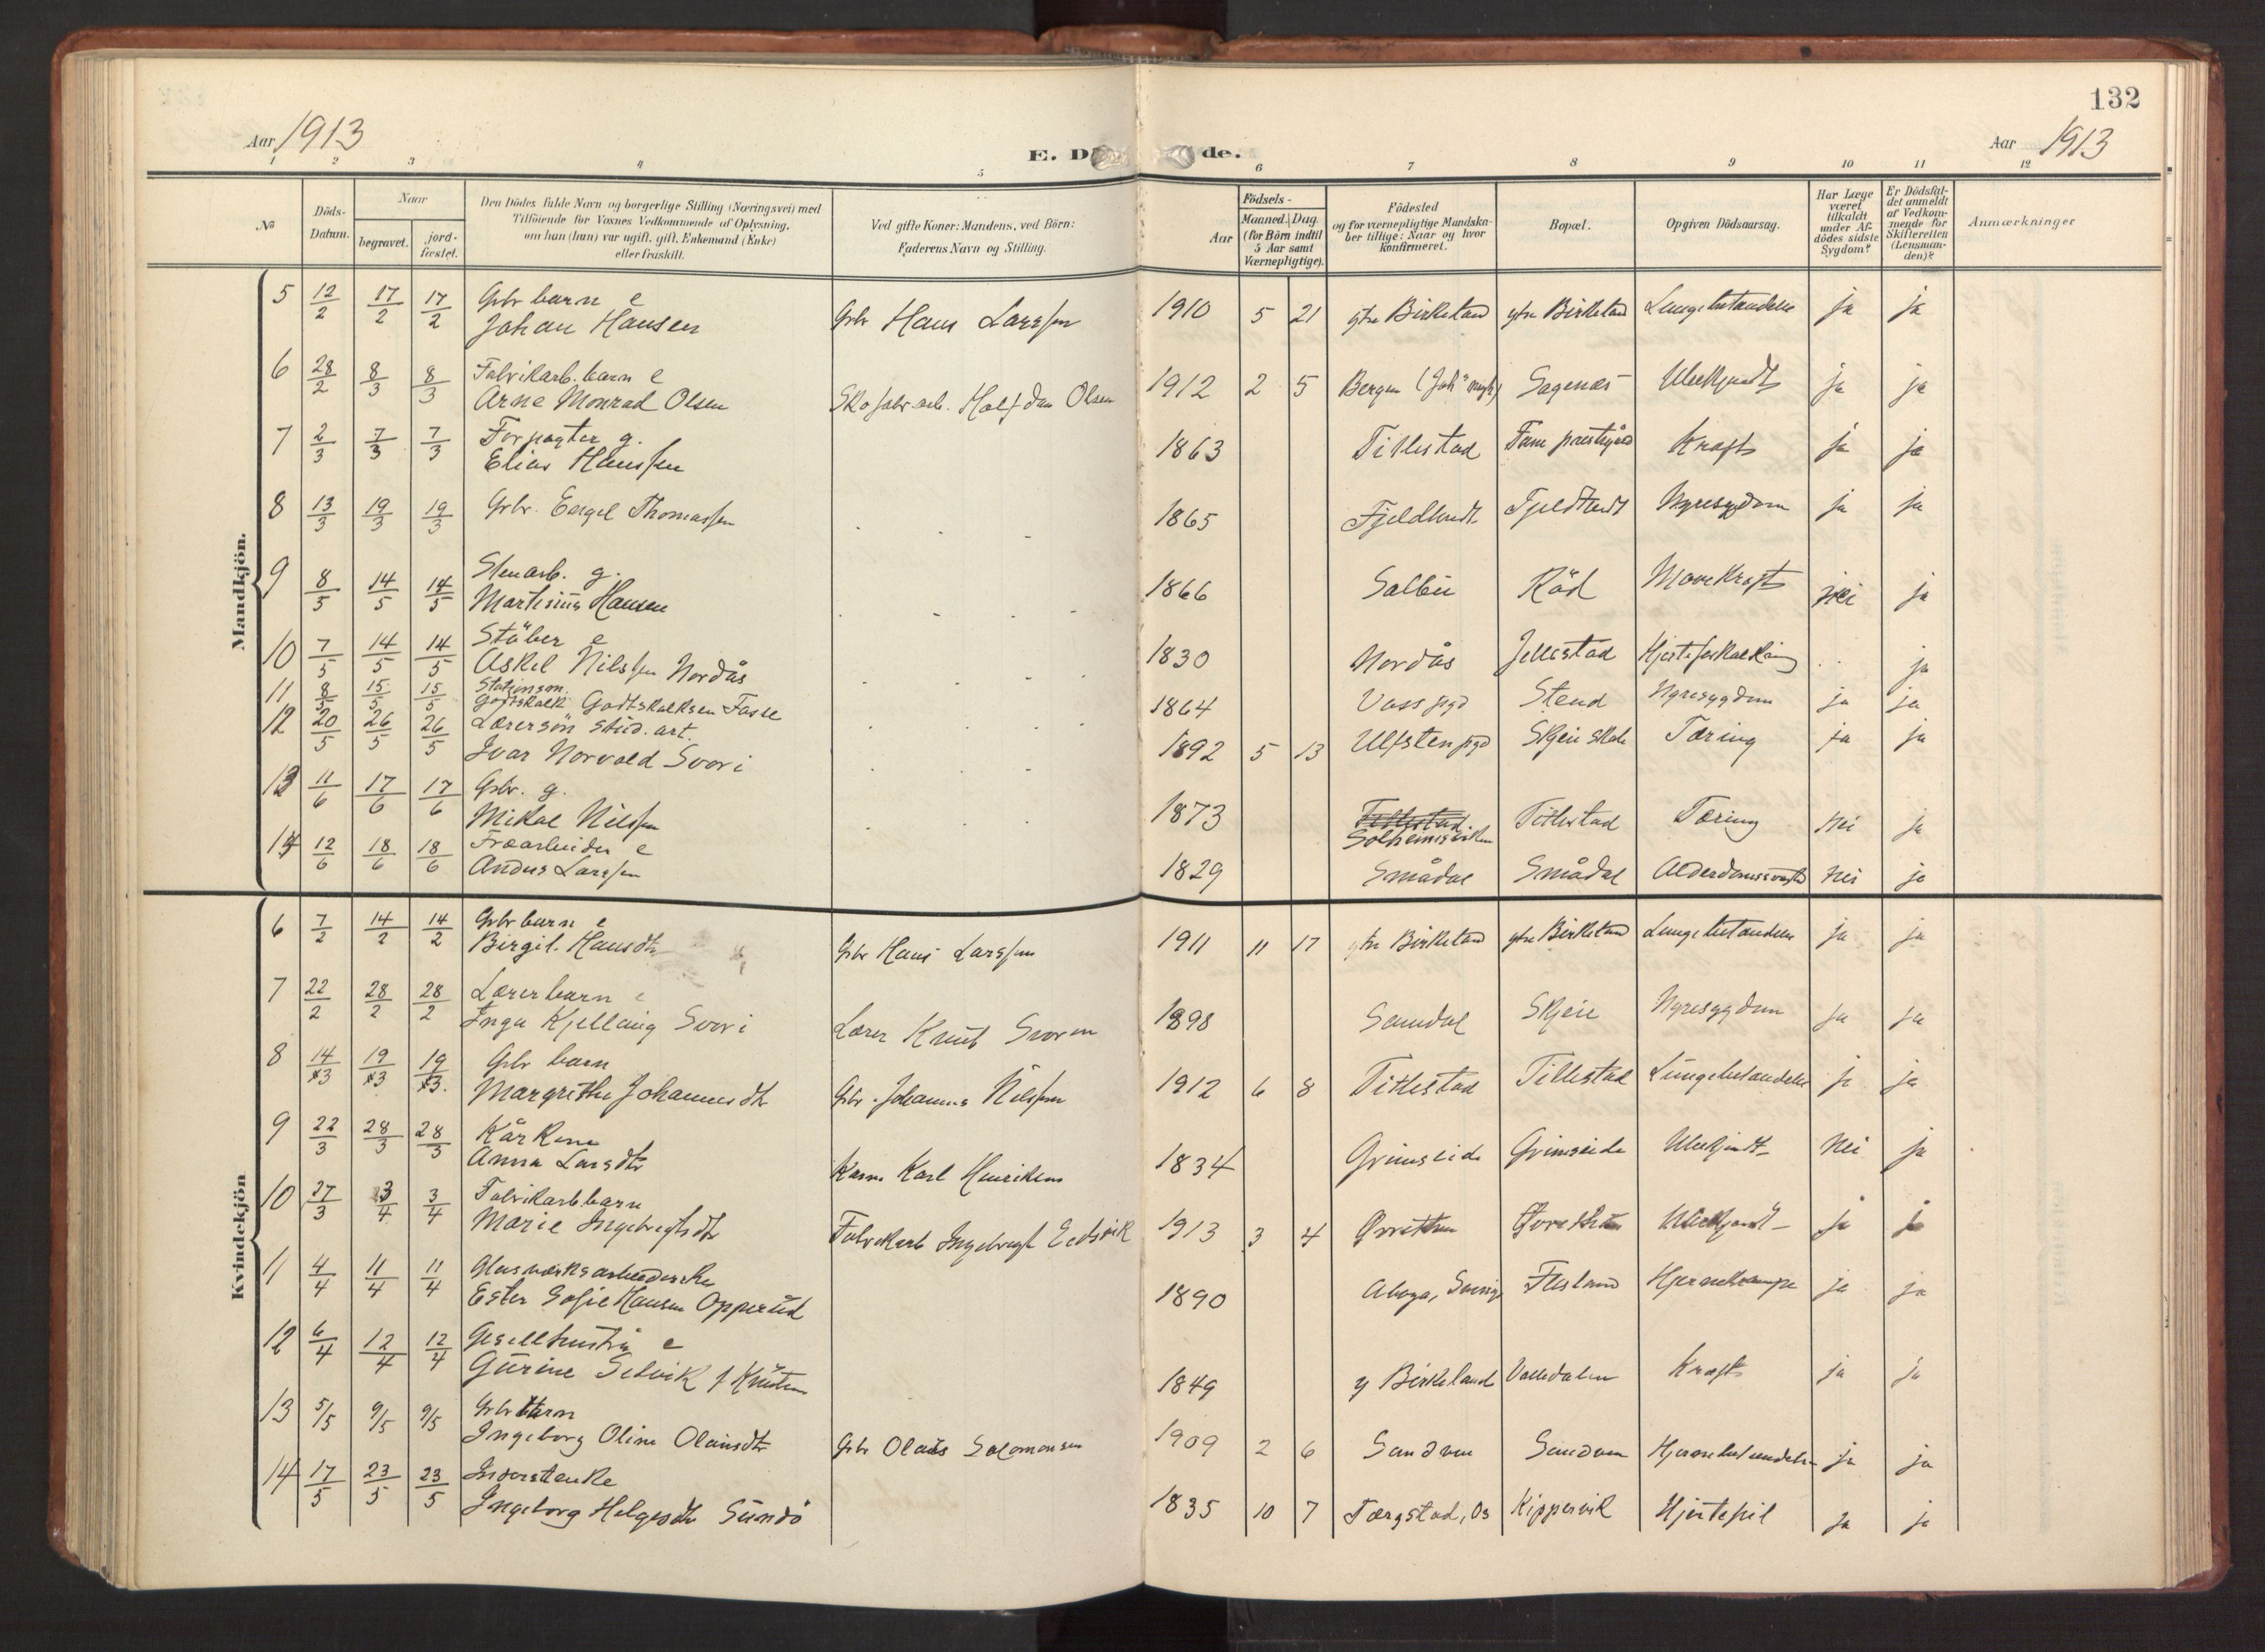 132
Aar 1913
E. D de.
Aar 1913
1 2 3 4 5 6 7 8 9 10 11 12
№
Döds-Datum.
Naar
begravet.
jord-fæstet.
Den Dödes fulde Navn og borgerlige Stilling (Næringsvei) med
Tilföiende for Voxnes Vedkommende af Oplysning,
om han (hun) var ugift, gift, Enkemand (Enke)
eller fraskilt.
Ved gifte Koner: Mandens, ved Börn:
Faderens Navn og Stilling.
Födsels-
Aar
Maaned. Dag.
(for Börn indtil
5 Aar samt
Værnepligtige).
Födested
og for værnepligtige Mandska-
ber tillige: Naar og hvor
konfirmeret.
Bopæl.
Opgiven Dödsaarsag.
Har Læge
været
tilkaldt
under Af-
dödes sidste
Sygdom?
Er Dödsfal-
det anmeldt
af Vedkom-
mende for
Skifteretten
(Lensman-
den)?
Anmærkninger
Mandkjön.
5 12/2 17/2 17/2 Gbr barn e
Johan Hansen Gbr Hans Larssen 1910 5 21 ytre Birkeland ytre Birkeland Lungebetændelse ja ja
6 28/2 8/3 8/3 Fabrikarb. barn e
Arne Monrad Olsen Skofabr. arb. Halfdan Olsen 1912 2 5 Bergen Sagenæs Ubekjendt ja ja
7 2/3 7/3 7/3 Forpagter g.
Elias Hanssen 1863 Titlestad Fane prestegård Kræft ja ja
8 13/3 19/3 19/3 Gbr. Engel Thomassen 1865 Fjeldtvedt Fjeldtvedt Nyresygdom ja ja
9 8/5 14/5 14/5 Stenarb. g.
Martinus Hansen 1866 Salbu Råd Mavekræft nei ja
10 7/5 14/5 14/5 e
Askel Nilssen Nordås 1830 Nordås Jellestad Hjerteforkalkning ja
11 8/5 15/5 15/5 Stationsm.
Godtskalk Godtskalksen Fasse 1864 Voss pgd Stend Nyresygdom ja ja
12 20/5 26/5 26/5 Lærersön stud. art.
Ivar Norvald Svori 1892 5 13 Ulfsten pgd Skjei skole Tæring ja ja
13 11/6 17/6 17/6 Gbr. g.
Mikal Nilssen 1873 Titlestad Solheimsviken Titlestad Tæring nei ja
14 12/6 18/6 18/6 e
Anders Larssen 1829 Smådal Smådal Alderdomssvaghed nei ja
Kvindekjön
6 7/2 14/2 14/2 Gbr barn e
Birgit Hansdtr Gbr Hans Larssen 1911 11 17 ytre Birkeland ytre Birkeland Lungebetændelse ja ja
7 22/2 28/2 28/2 Lærerbarn e
Inga Kjellaug Svori Lærer Knut Svoren 1898 Samdal Skjeie Nyresygdom ja ja
8 14/3 19/3 19/3. Gbr barn
Margrethe Johannesdtr Gbr. Johannes Nilssen 1912 6 8 Titlestad Titlestad Lungebetændelse ja ja
9 22/3 28/3 28/3 Kårkone
Anna Larsdtr Karl Henriksen 1834 Grimseide Grimseide Ubekjendt nei ja
10 27/3 3/4 3/4 Fabrikarb barn
Marie Ingebrigtsdtr Fabrikarb Ingebrigt Eidsvik 1913 3 4 Ubekjendt ja ja
11 4/4 11/4 11/4 Glasværksarbeiderske
Ester Sofie Hansen Opperud 1890 Flesland Hjernekrampe ja ja
12 6/4 12/4 12/4 e
Gurine Selvik f Knutsen 1849 y Birkeland Valledalen Kræft ja ja
13 5/5 9/5 9/5 Gbr barn
Ingeborg Oline Olaisdtr Gbr Olais Salomonsen 1909 2 6 Sandven Sandven Hjernebetændelse ja ja
14 17/5 23/5 23/5 Inderstenke
Ingeborg Helgesdtr Sundö 1835 10 7 Tærgstad, Os Kippersvik Hjertefeil ja ja